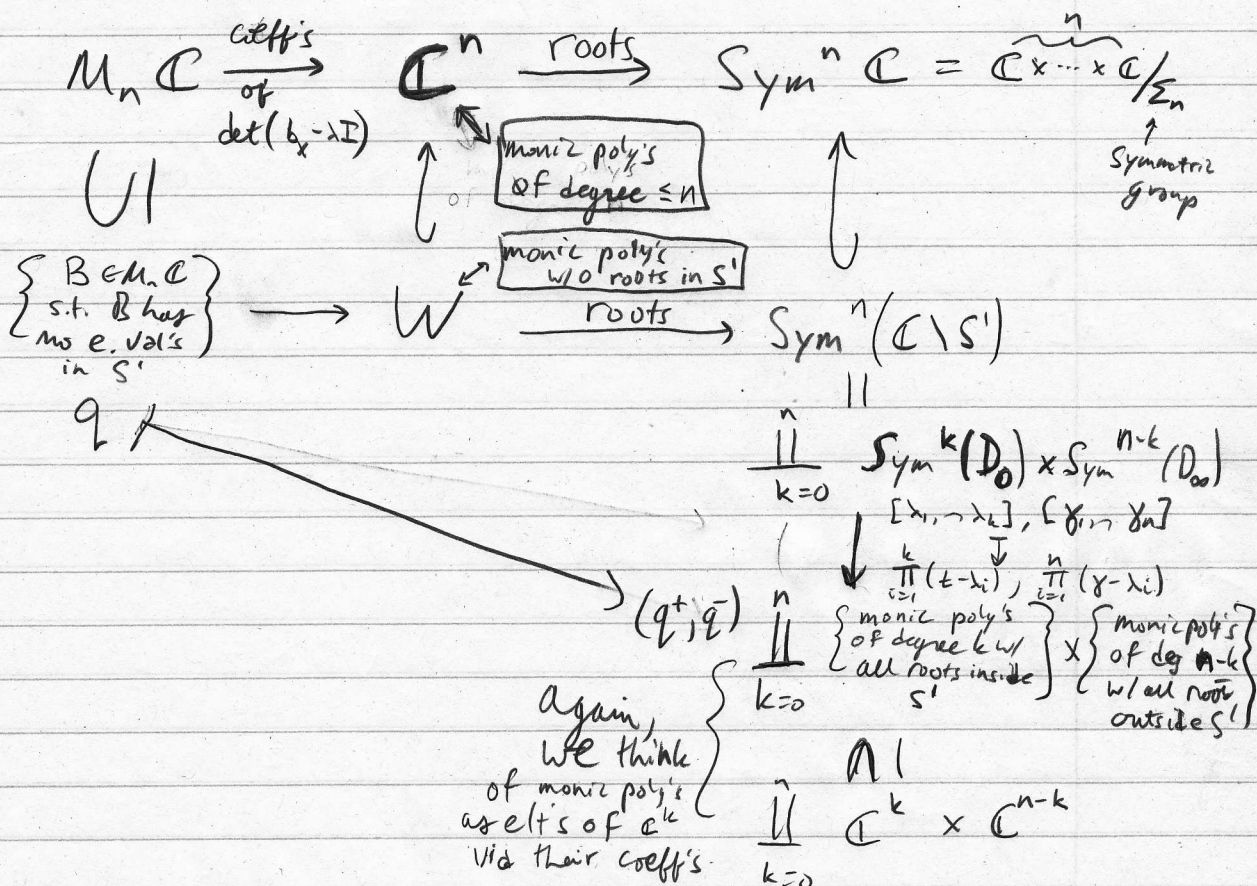 Mₙ ℂ coeff's of det(bₓ - λI) → ℂⁿ roots → Symⁿ ℂ = ℂ × ⋯ × ℂ / Σₙ
n
↑
Symmetric
group
monic poly's
of degree ≤ n
∪|
{ B ∈ Mₙ ℂ
s.t. B has
no e. val's
in S¹ } → W roots → Symⁿ(ℂ \ S¹)
monic poly's
w/o roots in S¹
||
q
∐ₖ₌₀ⁿ Symᵏ(D₀) × Symⁿ⁻ᵏ(D∞)
[λ₁, ... λₖ], [γ₁, ... γₙ]
↧
∏ᵢ₌₁ᵏ (t - λᵢ), ∏ᵢ₌₁ⁿ (γ - λᵢ)
(q⁺, q⁻) ∐ₖ₌₀ⁿ { monic poly's
of degree k w/
all roots inside
S¹ } × { monic poly's
of deg n-k
w/ all roots
outside S¹ }
Again,
we think
of monic poly's
as elt's of ℂᵏ
via their coeff's.
∩|
∐ₖ₌₀ⁿ ℂᵏ × ℂⁿ⁻ᵏ